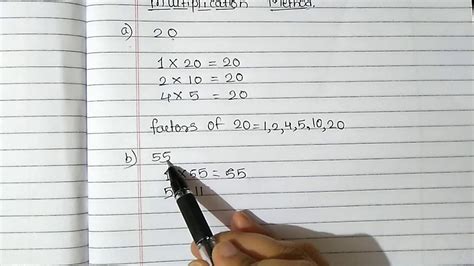 Multiplication Method.
a) 20
1 × 20 = 20
2 × 10 = 20
4 × 5 = 20
factors of 20 = 1, 2, 4, 5, 10, 20
b) 55
1 × 55 = 55
5 11